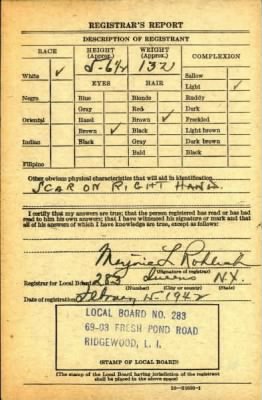 REGISTRAR'S REPORT
DESCRIPTION OF REGISTRANT
RACE HEIGHT (Approx.) WEIGHT (Approx.) COMPLEXION
White ✓ 5-6½ 132 Sallow
Light ✓
EYES HAIR
Negro Blue Blonde Ruddy
Gray Red Dark
Oriental Hazel Brown ✓ Freckled
Brown ✓ Black Light brown
Indian Black Gray Dark brown
Bald Black
Filipino
Other obvious physical characteristics that will aid in identification
SCAR ON RIGHT HAND.
I certify that my answers are true; that the person registered has read or has had
read to him his own answers; that I have witnessed his signature or mark and that
all of his answers of which I have knowledge are true, except as follows:
Marjorie L
(Signature of registrar)
Registrar for Local Board 283 Queens N.Y.
(Number) (City or county) (State)
Date of registration February 15-1942
LOCAL BOARD NO. 283
69-03 FRESH POND ROAD
RIDGEWOOD, L. I.
(STAMP OF LOCAL BOARD)
(The stamp of the Local Board having jurisdiction of the registrant
shall be placed in the above space)